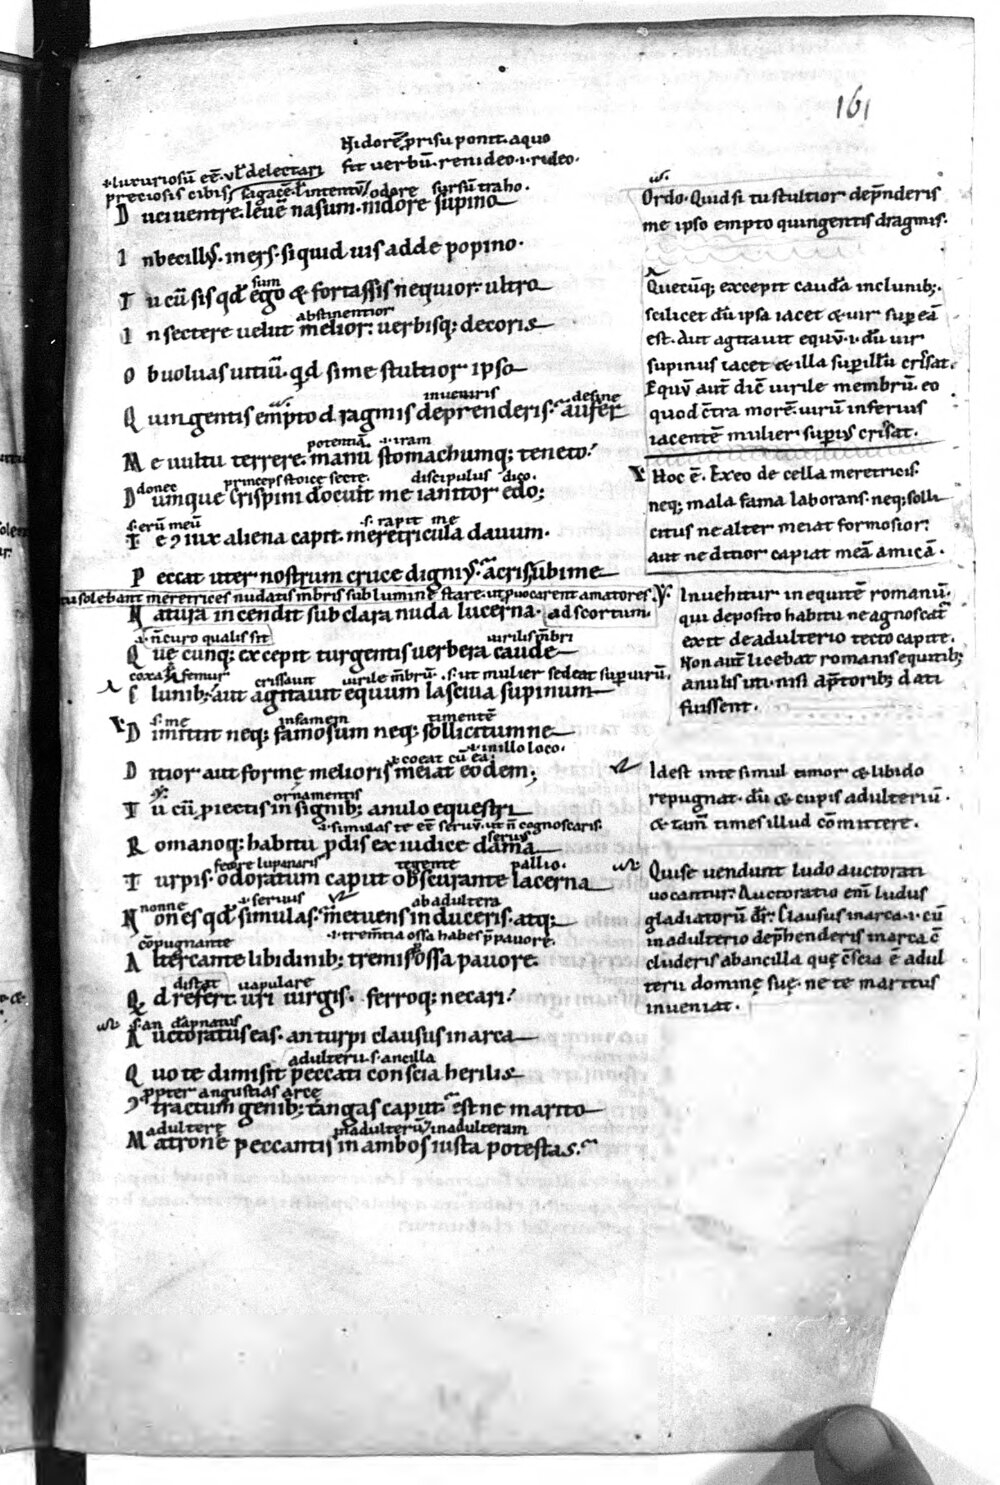 161
Nidorē. p̄risu ponit. aquo
fit uerbū. renideo .i. rideo.
.i. luxuriosū eē. vl̄ delectari
preciosis cibis; sagacē. l̄ intentū; odore sursū traho.
D uci uentre. leuē nasum. nidore supino
I nbecillꝰ. iners. siquid uis adde popino.
sum
T u cū sis qd̄ ego & fortassis nequior. ultro
abstinentior
I nsectere uelut melior: uerbisq; decoris
O buoluas uitiū. qd̄ si me stultior ipso
inueniris desine
Q uingentis empto dragmis deprenderis. aufer
potentiā .i. iram
M e uultu terrere. manū stomachumq; teneto.
donec princeps stoice secte. discipulus dico.
D unque crispini docuit me ianitor edo;
s. erū meū s. rapit me
T e ꝯiux aliena capit. meretricula dauum.
P eccat uter nostrum cruce dignꝰ. acris ubi me
tu solebant meretrices nudatis m̄bris sub lumine stare. ut ꝓuocarent amatores.
N atura incendit sub clara nuda lucerna. ad scortum.
.i. n̄ curo qualis sit uirilis m̄bri
Q uę cunq; excepit turgentis uerbera caudę
coxa femur crissauit uirile mēbrū. s. ut mulier sedeat super uirū.
C lunib; aut agitauit equum lasciua supinum
s. me infamem timentē
D imittit neq; famosum neq; sollicitum ne
.i. coeat cū ea; .i. in illo loco.
D itior aut formę melioris meiat eodem;
ornamentis
T u cū ꝓiectis insignib; anulo equestri
.i. simulas te eē seruū. ut n̄ cognoscaris.
seruus
R omanoq; habitu ꝓdis ex iudice dama
fetore lupanaris tegente pallio.
T urpis. odoratum caput obscurante lacerna
nonne .i. seruus ab adultera
N on es qd̄ simulas. metuens induceris. atq;
cōpugnante .i. trem̄tia ossa habes p̄ pauore.
A ltercante libidinib; tremis ossa pauore.
distat uapulare
Q d refert. uri uirgis. ferroq; necari.
s. an dāpnatus
A uctoratus eas. an turpi clausus in arca
adulterii s. ancilla
Q uo te dimisit peccati conscia herilis
ꝓpter angustias arce
ꝯ tractum genib; tangas caput. estne marito
adulterę in adulterū in adulteram
M atronę peccantis in ambos iusta potestas.
Ordo. Quid si tu stultior dep̄nderis
me ipso empto quingentis dragmis.
Quecūq; excepit caudā in clunib;.
scilicet dū ipsa iacet & uir sup eā
est. Aut agitauit equū .i. dū uir
supinus iacet & illa sup illū crissat.
Equū aut̄ dic̄ uirile membrū. eo
quod c̄tra morē. uirū inferius
iacentē mulier supius crissat.
Hoc ē. Exeo de cella meretricis.
neq; mala fama laborans. neq; solli
citus ne alter meiat formosior:
aut ne ditior capiat meā amicā.
Inuehitur in equitē romanū.
qui deposito habitu ne agnoscat̄
exit de adulterio tecto capite.
Non aut̄ licebat romanis equitib;
anulis uti. nisi ap̄torib; dati
fuissent.
Idest inte simul timor & libido
repugnat. dū & cupis adulteriū.
& tam̄ times illud cōmittere.
Qui se uendunt ludo auctorati
uocantur. Auctoratio enī ludus
gladiatorū dr̄. Clausus in arca .i. cū
in adulterio dep̄henderis in arca c̄
cluderis ab ancilla quę c̄scia ē adul
terii dominę suę. ne te maritus
inueniat.